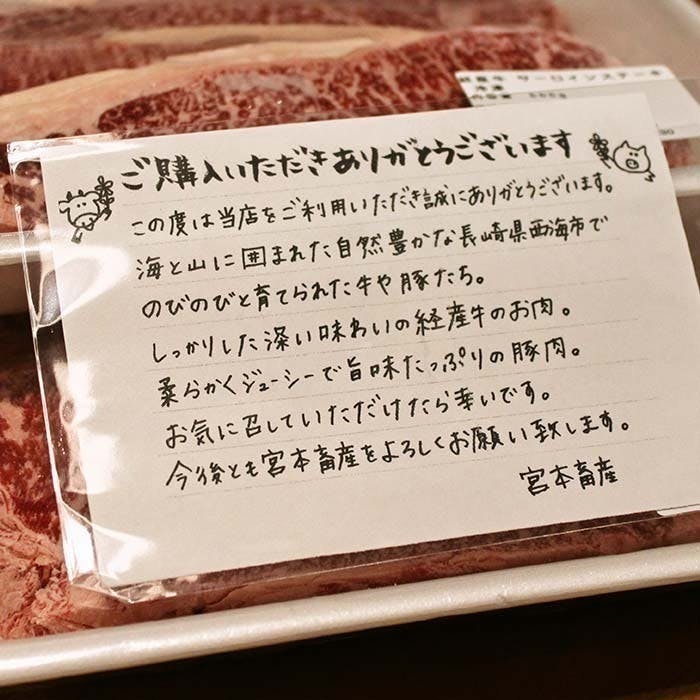 経産牛 サーロインステーキ
冷凍
ご購入いただきありがとうございます
この度は当店をご利用いただき誠にありがとうございます。
海と山に囲まれた自然豊かな長崎県西海市で
のびのびと育てられた牛や豚たち。
しっかりした深い味わいの経産牛のお肉。
柔らかくジューシーで旨味たっぷりの豚肉。
お気に召していただけたら幸いです。
今後とも宮本畜産をよろしくお願い致します。
宮本畜産